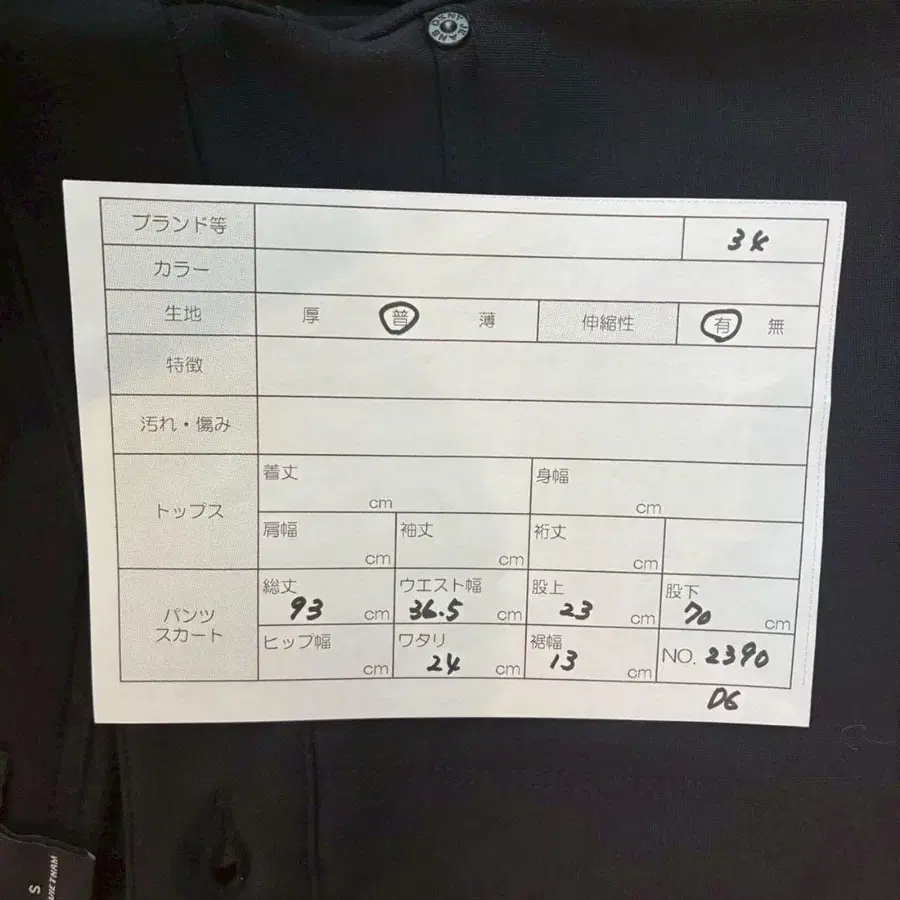 DKNY JEANS
ブランド等 34
カラー
生地 厚 普 薄 伸縮性 有 無
特徴
汚れ・傷み
トップス
着丈 cm 身幅 cm
肩幅 cm 袖丈 cm 裄丈 cm
パンツ
スカート
総丈 93 cm ウエスト幅 36.5 cm 股上 23 cm 股下 70 cm
ヒップ幅 cm ワタリ 24 cm 裾幅 13 cm NO. 2390
D6
S
VIETNAM